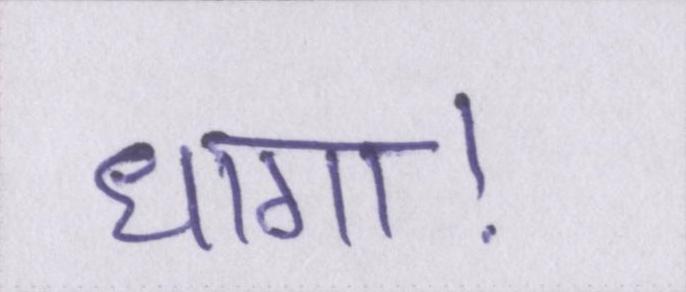 धागा!